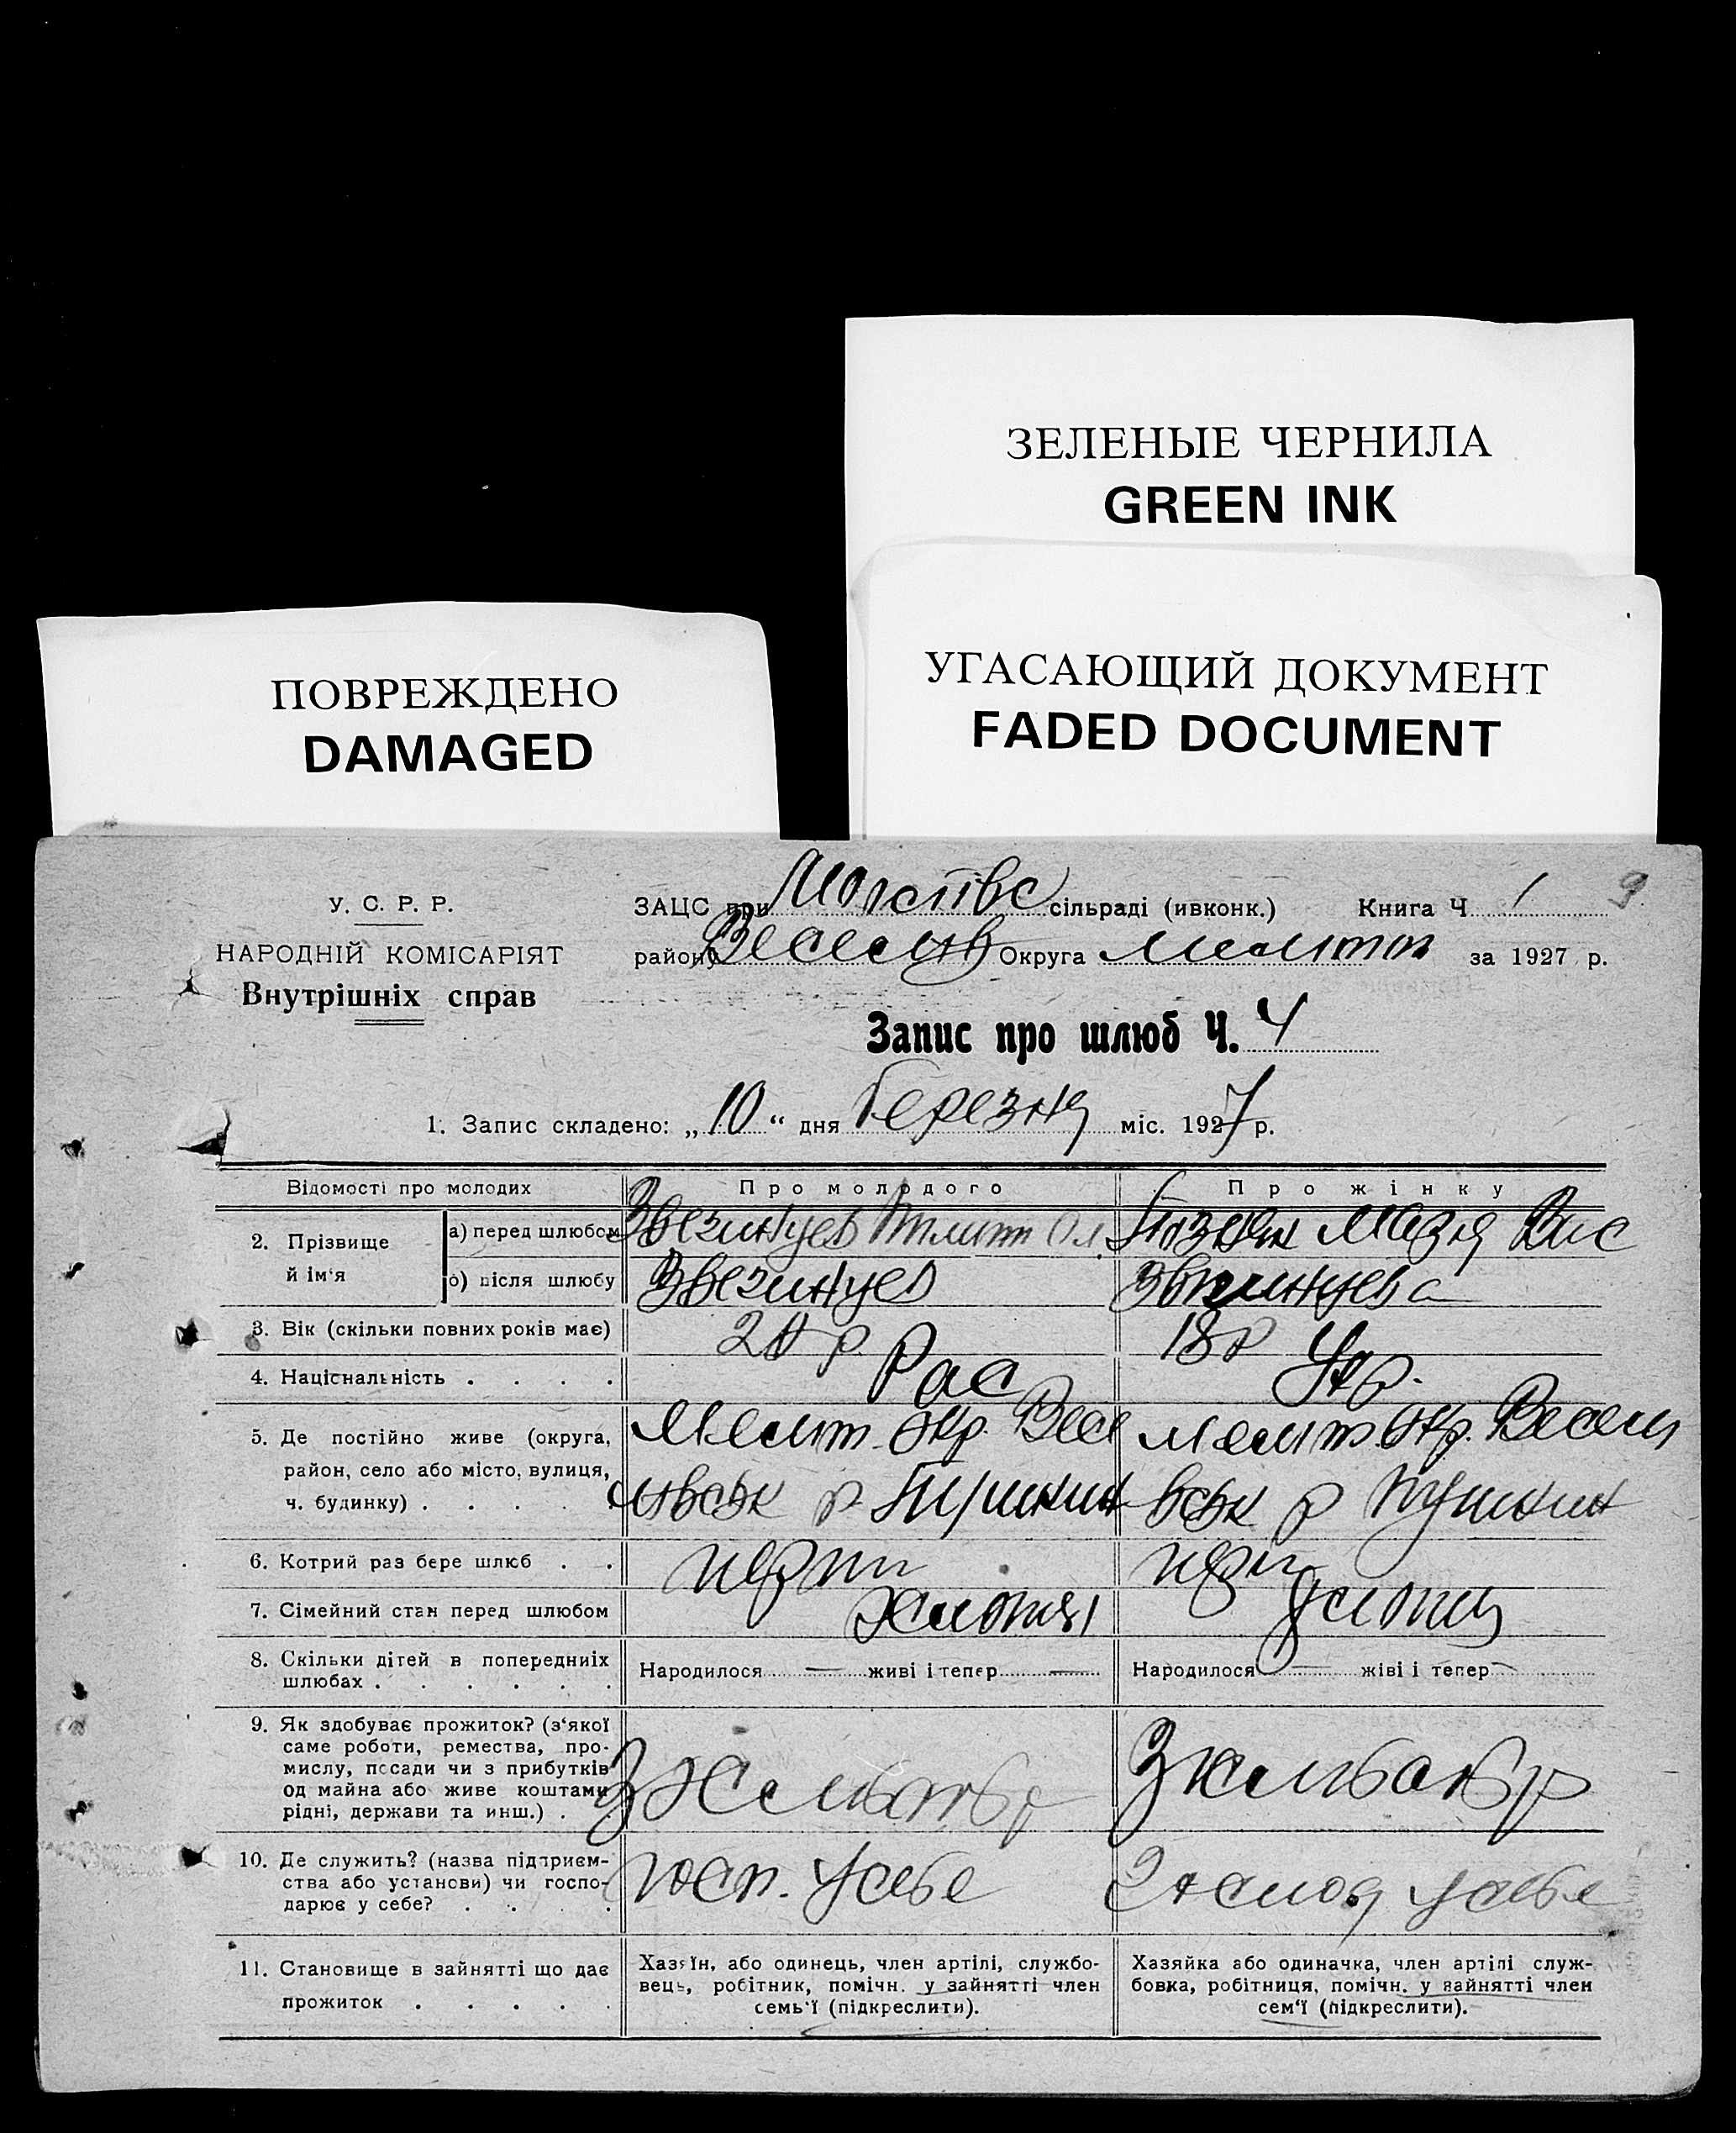 ЗЕЛЕНЫЕ ЧЕРНИЛА
GREEN INK
УГАСАЮЩИЙ ДОКУМЕНТ
FADED DOCUMENT
ПОВРЕЖДЕНО
DAMAGED
У. С. Р. Р.
НАРОДНІЙ КОМІСАРІЯТ
Внутрішніх справ
ЗАЦС при сільраді (ивконк.) Книга Ч 1 9
району Веселів Округа Мелітоп за 1927 р.
Запис про шлюб Ч. 4
1. Запис складено: „10“ дня березня міс. 1927 р.
Відомості про молодих
Про молодого
Про жінку
2. Прізвище й ім'я
а) перед шлюбом
Звегинцев
б) після шлюбу
Звегинцев
Звегинцева
3. Вік (скільки повних років має)
18 р
4. Національність . . . .
Рос
Укр.
5. Де постійно живе (округа,
район, село або місто, вулиця,
ч. будинку) . . . . .
Мелит. Окр. Весе
лівськ р. Пушкин
Мелит. Окр. Весели
вськ р Пушкин
6. Котрий раз бере шлюб . .
перш
перш
7. Сімейний стан перед шлюбом
8. Скільки дітей в попередниіх
шлюбах . . . . . .
Народилося — живі і тепер —
Народилося — жіві і тепер —
9. Як здобуває прожиток? (з'якої
саме роботи, ремества, про-
мислу, посади чи з прибутків
од майна або живе коштами
рідні, держави та инш.) . .
З хліборб
З хлібор
10. Де служить? (назва підприєм-
ства або установи) чи госпо-
дарює у себе? . . . .
госп. у себе
у себе
11. Становище в зайнятті що дає
прожиток . . . . .
Хазяїн, або одинець, член артілі, службо-
вець, робітник, помічн. у зайнятті член
семь'ї (підкреслити).
Хазяйка або одиначка, член артілі служ-
бовка, робітниця, помічн. у зайнятті член
сем'ї (підкреслити).